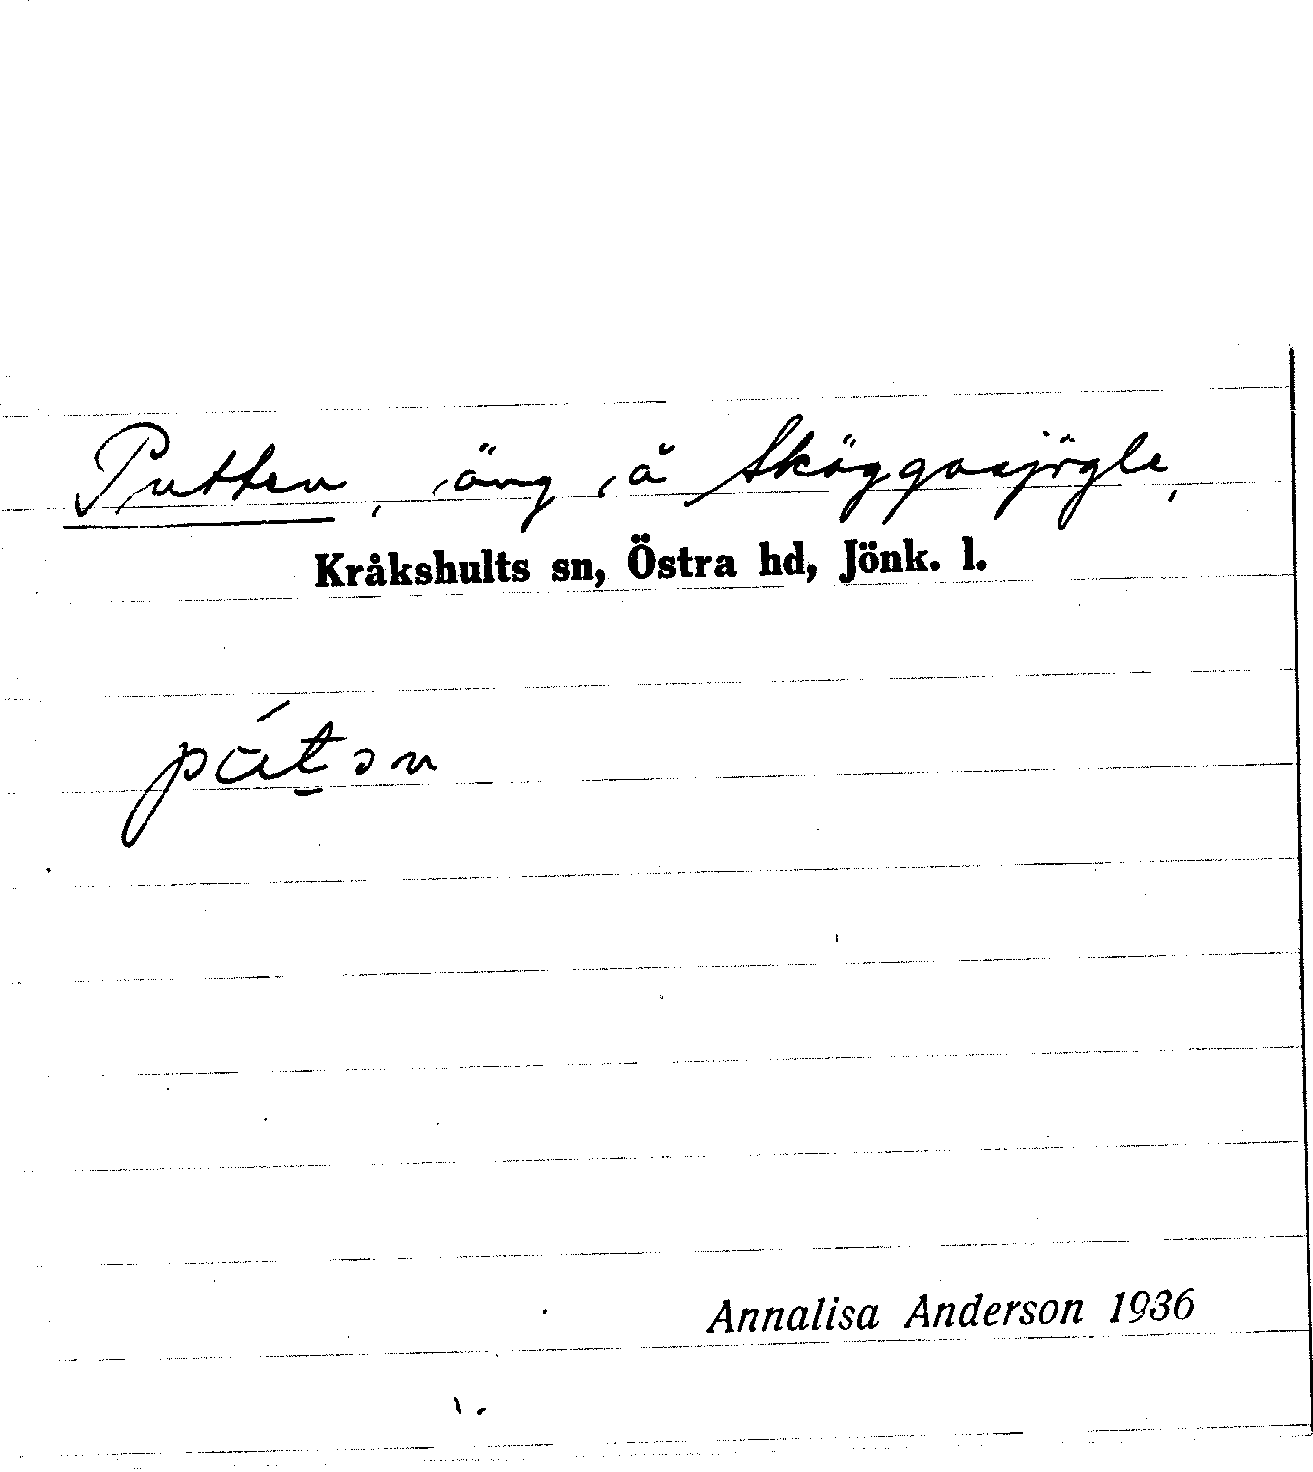 Putten, äng, å Sköggasjögle,
Kråkshults sn, Östra hd, Jönk. l.
Annalisa Anderson 1936